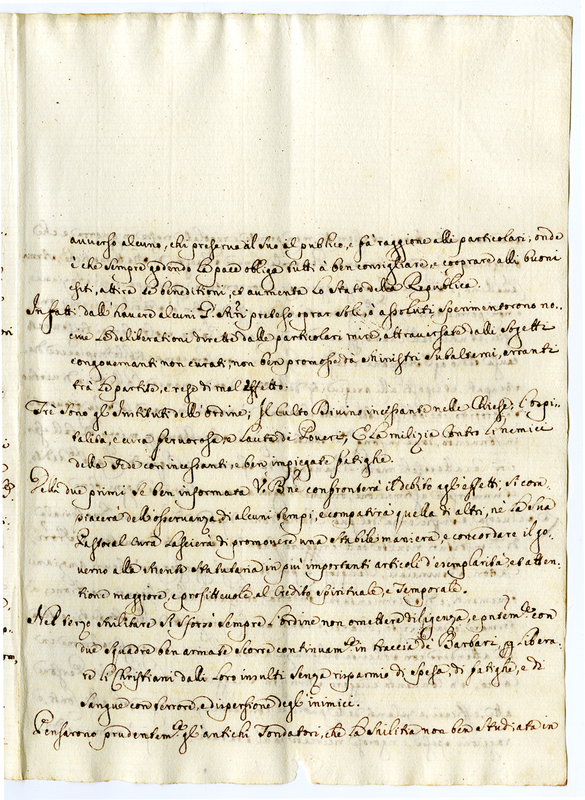 auuerso alcuno, chi preserua il suo al publico, e fà raggione alli particolari; onde
è che sempre godendo la pace obliga tutti à ben consigliare, e cooprare alli buoni
esiti, attire le beneditioni, et aumenta lo Stato della Republica.
In fatti dall' hauere alcuni G. Mri preteso oprar soli, ò assoluti sperimentorono no-
ciue le deliberationi dirette dalle particolari mire, attrauersate dalli sogetti
congouernanti non curati, non ben promosse da Ministri subalterni, erranti
trà le partite, e rese di mal effetto.
Trè sono gl' Instituti dell' ordine; Il Culto Diuino incessante nelle Chiese, l' ospi-
talità, e cura feruorosa, e lauta de Poueri, E la milizia contro l' inemici
della Fede con incessanti, e ben impiegate fatighe.
Delli due primi se ben informata V. Bne confronterà il debito agl' effetti, si com-
piacerà dell' osseruanza di alcuni tempi, e compatirà quella di altri, nè la sua
Pastoral cura lasciera di promouere una stabile maniera, e concordare il go-
uerno alla mente statutaria in più importanti articoli d' esemplarità, et atten-
tione maggiore, e profitteuole al credito spirituale, e temporale.
Nel terzo militare si sforzò sempre l' ordine non omettere diligenza, e con
due squadre ben armate scorre continuamte in traccia de Barbari libera-
re li Christiani dalli loro insulti senza risparmio di spesa, di fatighe, e di
sangue con terrore, e dispersione degl' inimici.
Pensarono prudentemte gl' antichi Fondatori, che la militia non ben studiata in